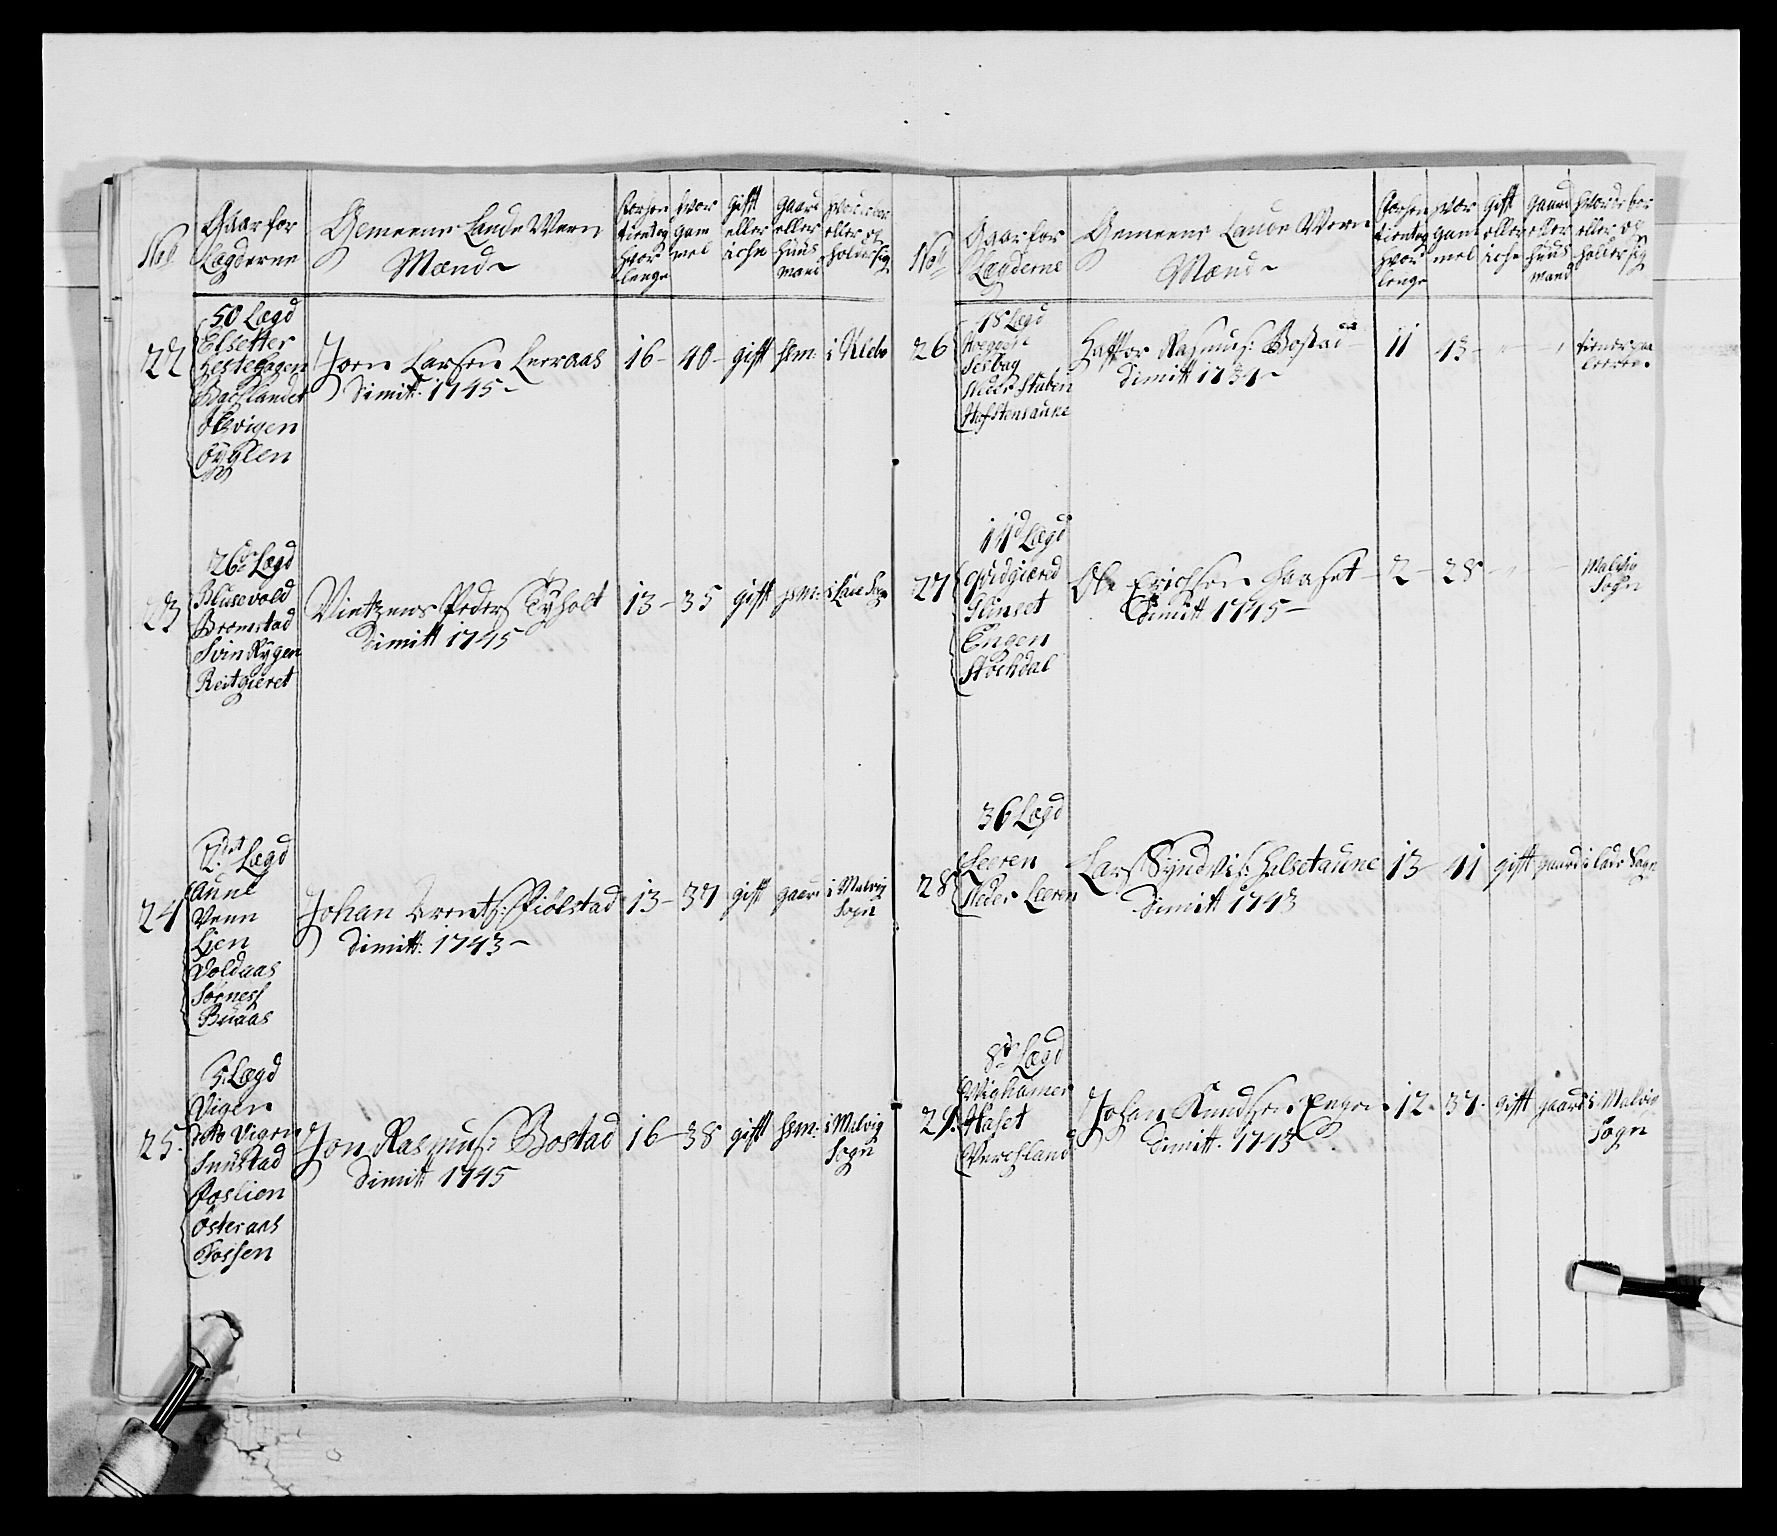 No
Gaar for
Lægderne
Gemeene Lande Wern
Mænd
hvor
lenge
hvor
gam
mel
gift
eller
iche
gaard
eller
huus
mand
eller op
holder sig
22
50 Lægd
Elsetter
Hestehagen
Bachlandet
Øfglen
Joen Larsen Leeraas
dimitt: 1745
16 - 40 - gift hsm: i Klebo
23
26de Lægd
Blusevold
Bromstad
Svin Rygen
Reitgieret
Vintzens Peders: Tyholt
dimitt 1745
13 - 35 gift hsm: i Lade Sogn
24
2det Lægd
Aune
Venn
Lien
Voldaas
Sørness
Buaas
Johan Arents: Fiølstad
dimitt: 1743
13 - 37 gift gaard i Malvig
Sogn
25.
5. Lægd
Vigen
dito Vigen
Snustad
Østeraas
Fossen
Jon Rasmus: Bostad
dimitt 1745
16 - 38 gift hsm: i Malvig
Sogn
No
Gaar for
Lægderne
Gemeene Lande Wern
Mænd
hvor
lenge
hvor
gam
mel
gift
eller
iche
gaard
eller
huus
mand
hvor de boe
eller op
holder sig
26
Lægd
Neder Stuben
Hofstensaune
Haffor Rasmus: Bostad
dimitt
11 43 - " - "
27
14d Lægd
Vidgiæred
Engen
Stochdal
Ole Erichsen Haaset
dimitt 1745
2 - 28 - " -
Malvig
Sogn
28
36 Lægd
Leeren
Neder Leeren
Lars Syndvis: Halsetaune
dimitt 1743
13 - 41 gift gaard i Lade Sogn
29.
8de Lægd
Vighamer
Haset
Verchland
Johan Knudsen Engen
dimitt: 1743
12 - 37 - gift gaard i Malvig
Sogn